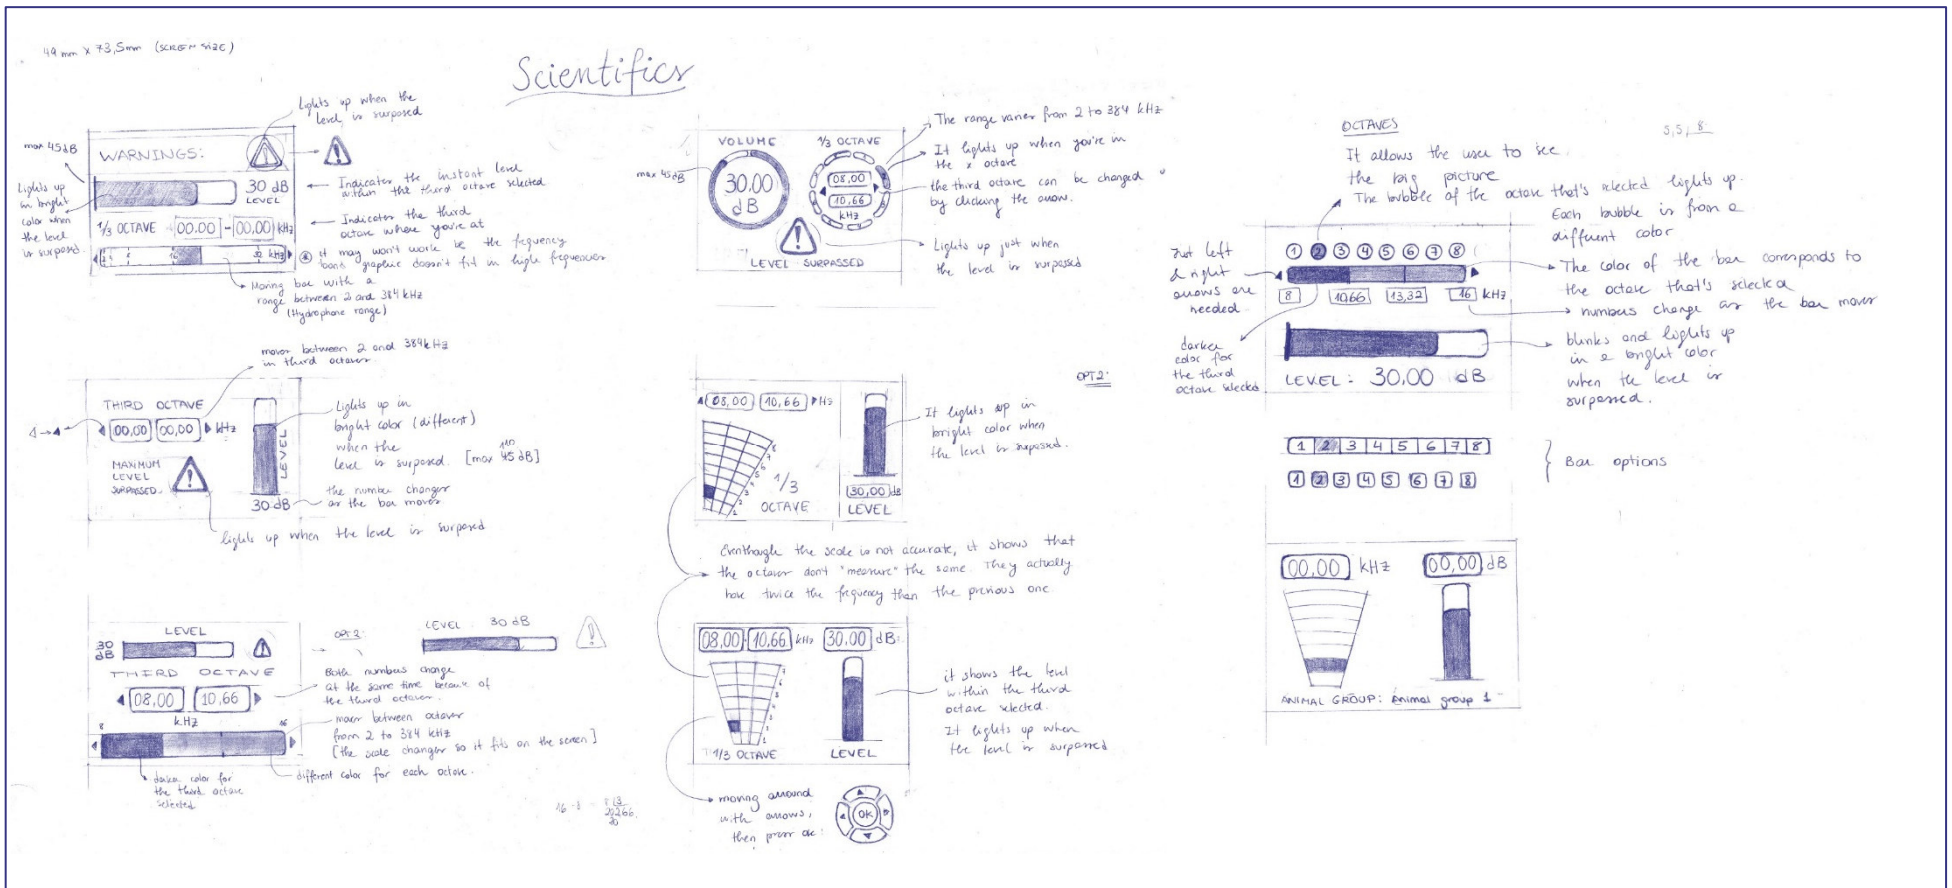 49 mm x 73,5mm (SCREEN SIZE)
Scientifics
Lights up when the
level is surposed
max 45dB
WARNINGS:
30 dB
LEVEL
Lights up
in bright
color when
the level
is surpased.
Indicates the instant level
within the third octave selected
1/3 OCTAVE 00.00 - 00,00 kHz
Indicates the third
octave where you're at
16
32 kHz
it may won't work bc the frequency
band graphic doesn't fit in high frequencies
Moving bar with a
range between 2 and 384 kHz
(Hydrophone range)
moves between 2 and 384kHz
in third octaves
THIRD OCTAVE
00,00 00,00 kHz
MAXIMUM
LEVEL
SURPASSED
LEVEL
30 dB
Lights up in
bright color (different)
when the
level is surposed. [max 45 dB]
110
the number changes
as the bar moves
lights up when the level is surpased
LEVEL
30
dB
THIRD OCTAVE
08,00 10,66
kHz
8
16
OPT 2:
LEVEL 30 dB
Both numbers change
at the same time because of
the third octaves.
moves between octaves
from 2 to 384 kHz
[the scale changes so it fits on the screen]
darker color for
the third octave
selected
different color for each octave.
VOLUME
max 45dB
30.00
dB
1/3 OCTAVE
08,00
10,66
kHz
LEVEL SURPASSED
The range varies from 2 to 384 kHz
It lights up when you're in
the x octave
the third octave can be changed
by clicking the arrow.
Lights up just when
the level is surpassed
OPT 2:
08,00 10,66 Hz
1/3
OCTAVE
30,00 dB
LEVEL
It lights up in
bright color when
the level is surpassed.
Eventhough the scale is not accurate, it shows that
the octaves don't "measure" the same. They actually
have twice the frequency than the previous one.
08,00 10,66 kHz 30.00 dB
1/3 OCTAVE
LEVEL
it shows the level
within the third
octave selected.
It lights up when
the level is surpassed
moving arround
with arrows,
then press ok:
OK
OCTAVES
5,5, 8
It allows the user to see
the big picture
The bubble of the octave that's selected lights up.
Each bubble is from a
different color
1 2 3 4 5 6 7 8
Just left
& right
arrows are
needed.
8 10,66 13,32 16 kHz
The color of the bar corresponds to
the octave that's selected
numbers change as the bar moves
darker
color for
the third
octave selected
LEVEL: 30,00 dB
blinks and lights up
in a bright color
when the level is
surpassed.
1 2 3 4 5 6 7 8
1 2 3 4 5 6 7 8
Bar options
00,00 kHz 00,00 dB
ANIMAL GROUP: Animal group 1